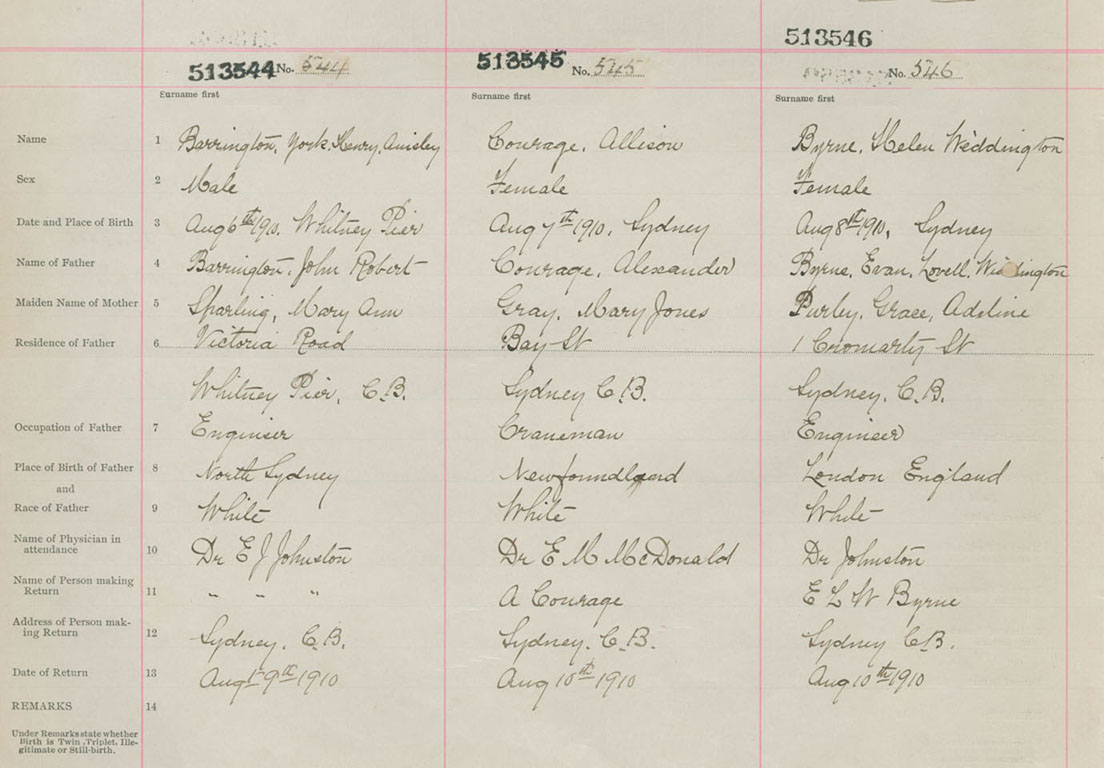 513546
513544 No. 544 513545 No. 545 No. 546
Surname first Surname first Surname first
Name 1 Barrington, York, Henry, Ainsley Courage, Allison Byrne, Helen Weddington
Sex 2 Male Female Female
Date and Place of Birth 3 Aug 6th 1910. Whitney Pier Aug 7th 1910, Sydney Aug 8th 1910, Sydney
Name of Father 4 Barrington, John Robert Courage, Alexander Byrne, Evan, Lovell,
Maiden Name of Mother 5 Sparling, Mary Ann Gray, Mary Jones Purley, Grace, Adeline
Residence of Father 6 Victoria Road Bay St 1 Cromarty St
Whitney Pier, C.B. Sydney C.B. Sydney, C.B.
Occupation of Father 7 Engineer Craneman Engineer
Place of Birth of Father 8 North Sydney Newfoundland London England
and
Race of Father 9 White White White
Name of Physician in
attendance 10 Dr E J Johnston Dr E M McDonald Dr Johnston
Name of Person making
Return 11 " " " A Courage E L W Byrne
Address of Person mak-
ing Return 12 Sydney, C.B. Sydney, C.B. Sydney C.B.
Date of Return 13 Aug 9th 1910 Aug 10th 1910 Aug 10th 1910
REMARKS 14
Under Remarks state whether
Birth is Twin, Triplet, Ille-
gitimate or Still-birth.